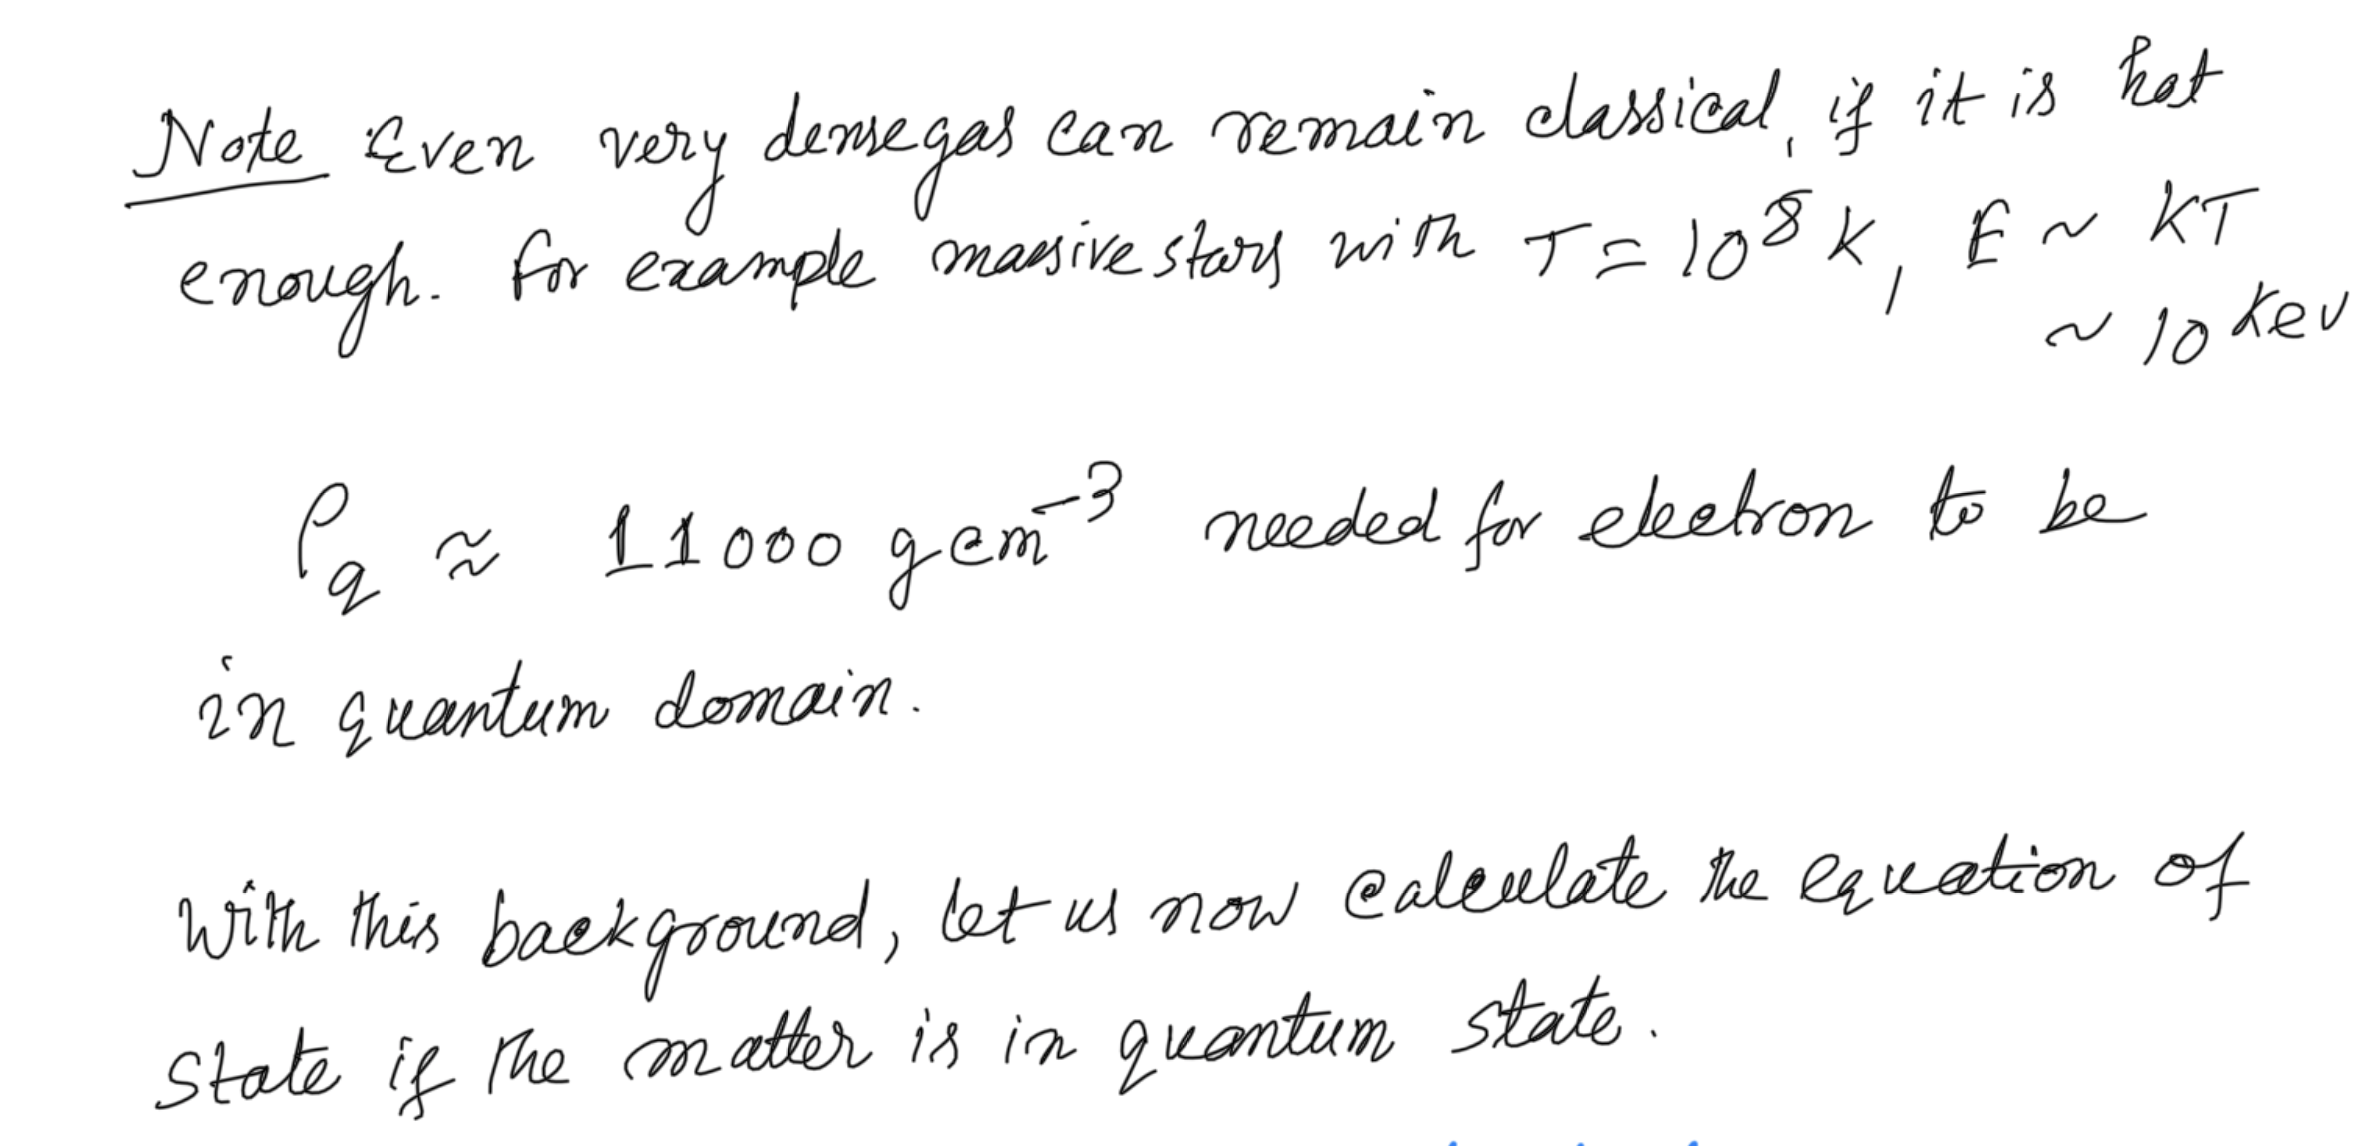 Note Even very dense gas can remain classical, if it is hot
enough. For example massive stars with T = 10⁸ K, E ~ KT
~ 10 Kev
ρ_q ≈ 11000 g cm⁻³ needed for electron to be
in quantum domain.
With this background, let us now calculate the equation of
state if the matter is in quantum state.